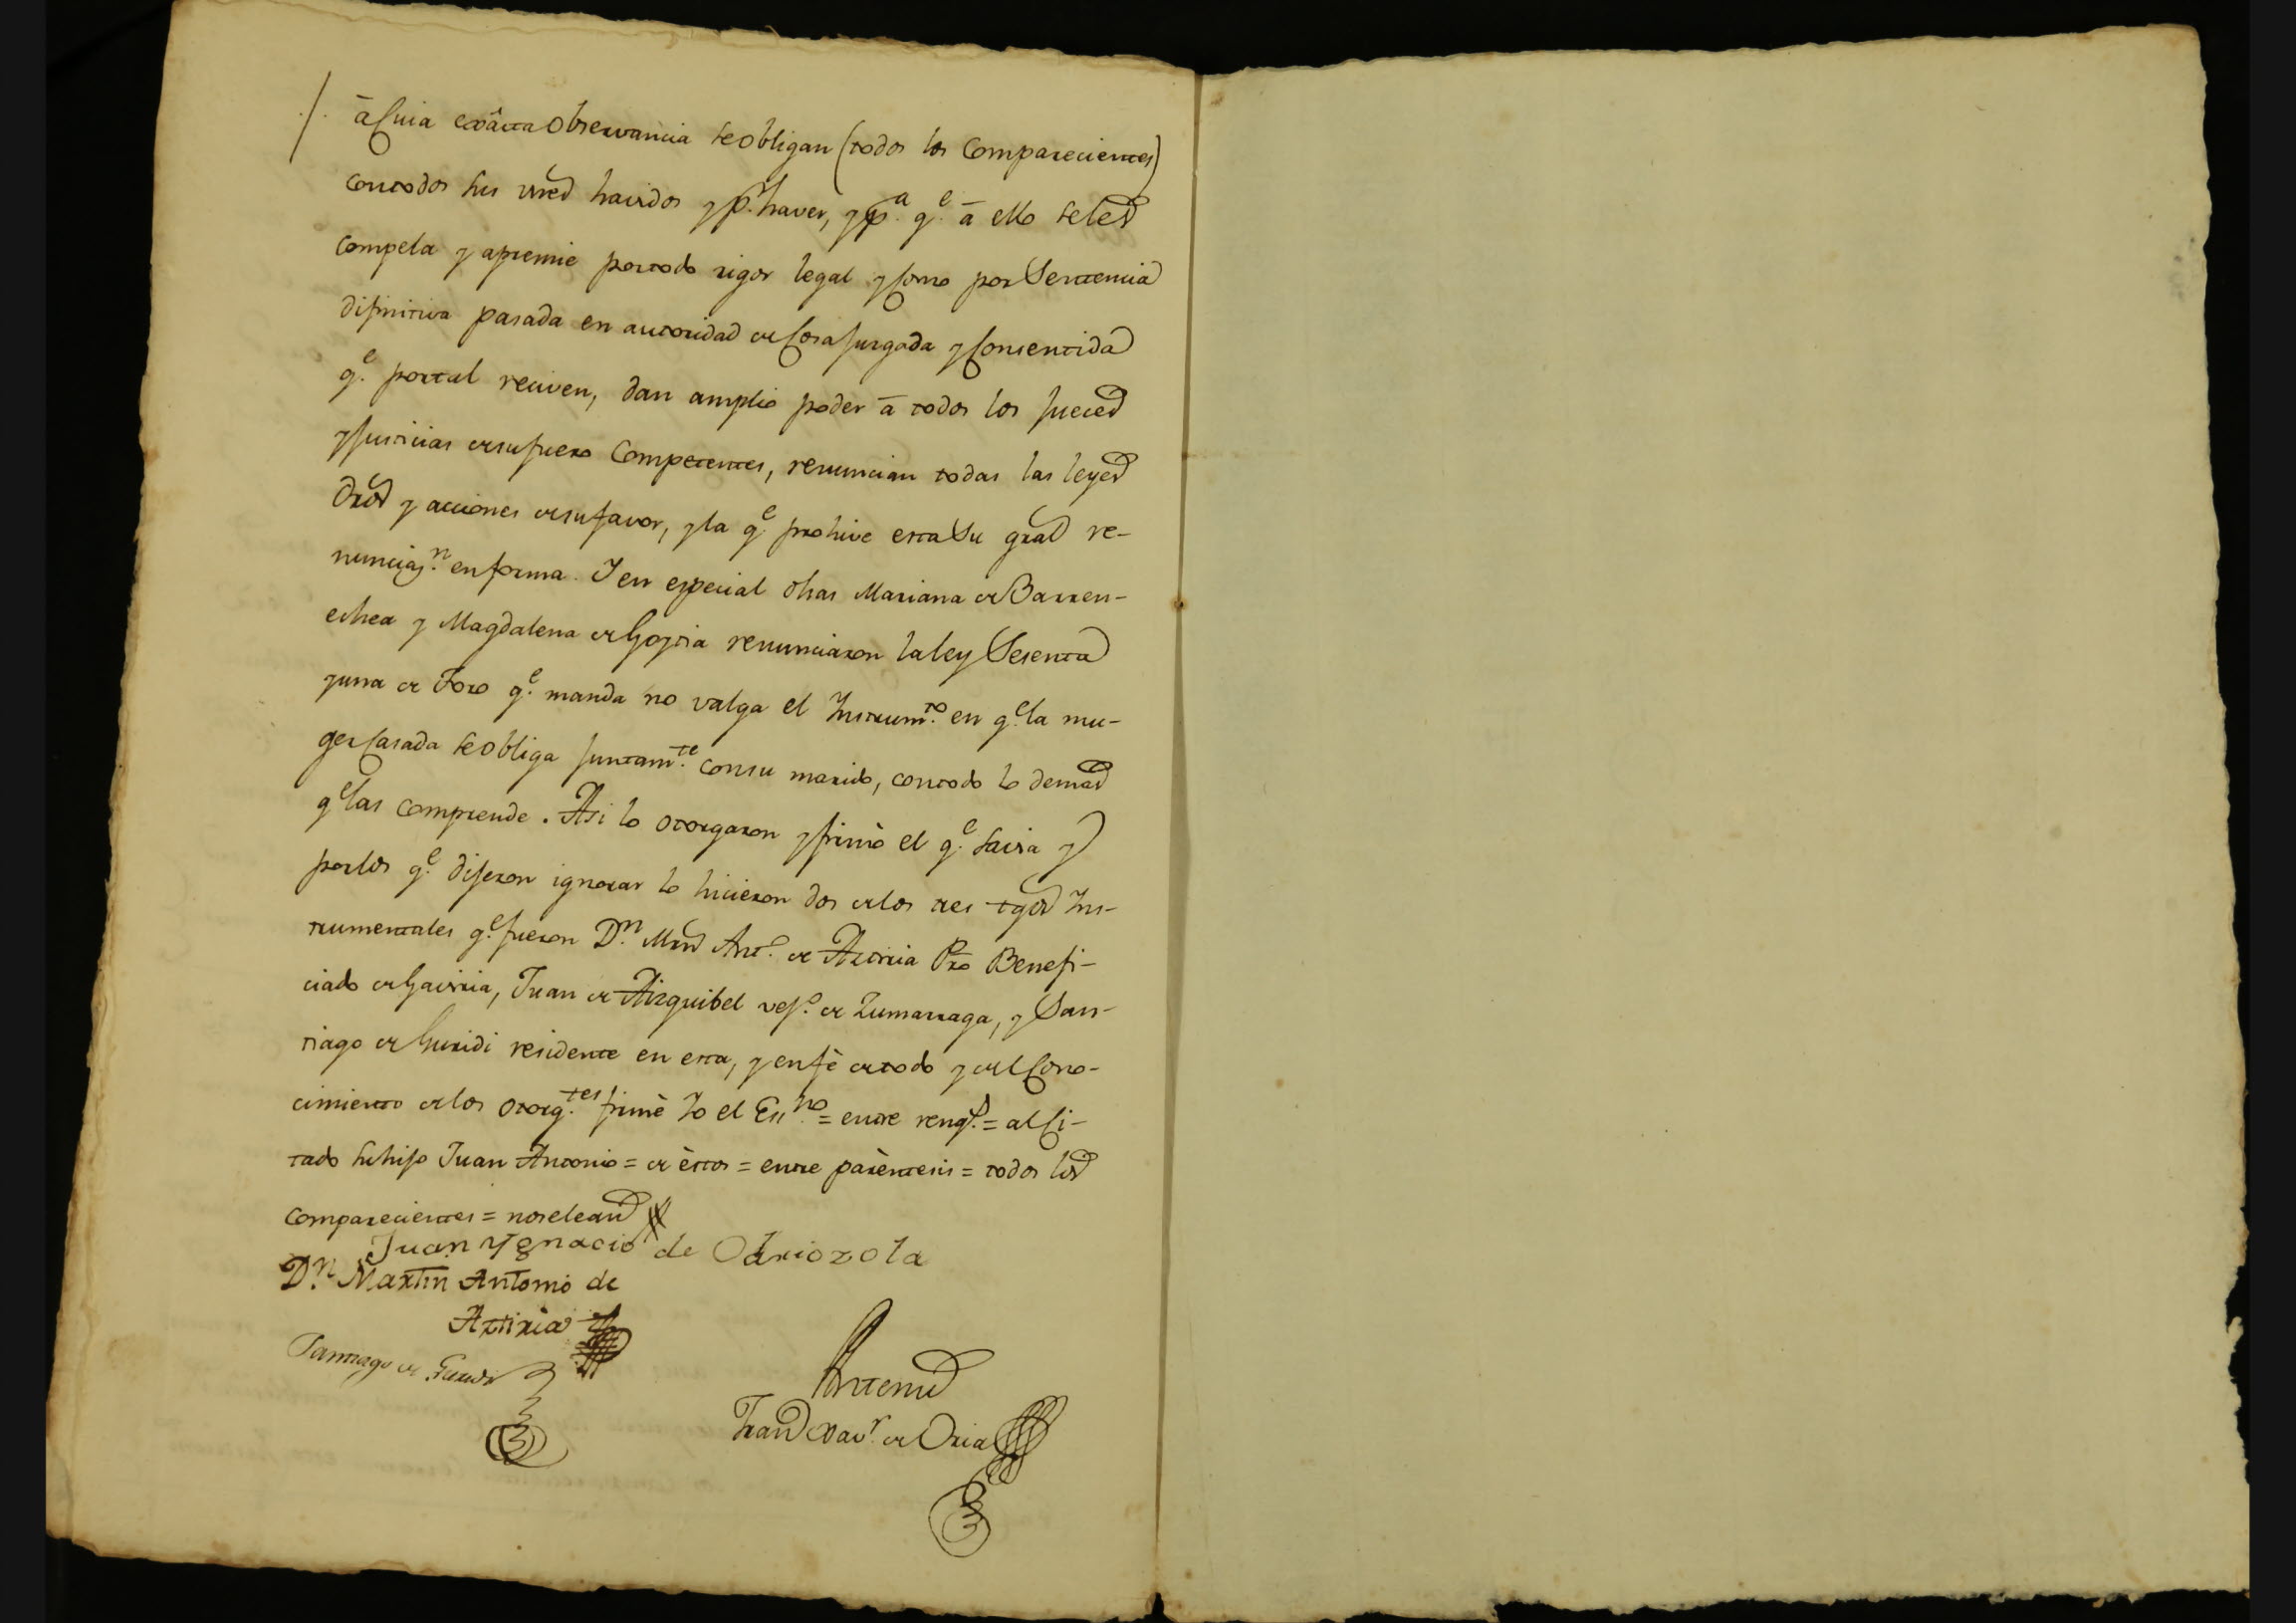 â Cuia exâcta Observancia se obligan (todos los Comparecientes)
con todos sus vnes havidos y p.r haver, y p.a q.e â ello se les
compela y apremie por todo rigor legal y Como por Sentencia
difinitiva pasada en autoridad de Cosa Juzgada y Consentida
q.e por tal reciven, dan amplio poder â todos los Jueces
y Justicias de su fuero Competentes, renuncian todas las leyes
dros y acciones de su favor, y la q.e prohive esta Su gral re-
nunciaz.n en forma. Y en especial dhas Mariana de Barren-
echea y Magdalena de Goytia renunciaron la ley Sesenta
y una de Toro q.e manda no valga el Instrum.to en q.e la mu-
ger Casada se obliga Juntam.te con su marido, con todo lo demas
q.e las comprende. Asi lo otorgaron y firmò el q.e savia y
por los q.e dijeron ignorar lo hicieron dos de los tres tgos Ins-
trumentales q.e fueron D.n Mrn Ant.o de Aztiria Pro Benefi-
ciado de Gaviria, Juan de Aizquibel vez.o de Zumarraga, y San-
tiago de Guridi residente en esta, y en fè de todo y del Cono-
cimiento de los otorg.tes firmè Yo el Es.no = entre rengs. = al Ci-
tado su hijo Juan Antonio = de èstos = entre parèntesis = todos los
comparecientes = no se lean
Juan Ygnacio de Odriozola
D.n Martin Antonio de
Aztiria
Santiago de Guridi
Ante mi
Fran.co Xav.r de Oria